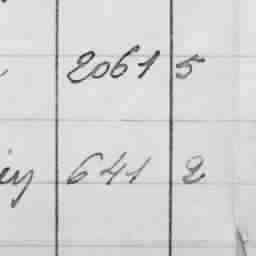 2061 5
641 2